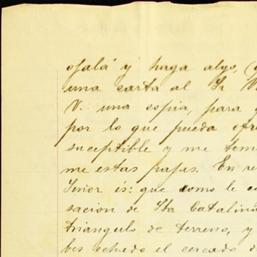 ojalá y haga algo, (
una carta al Sr W
V. una copia, para q
por lo que pueda ofre
suceptible y me tem
me estas papas. En re
Señor es: que como le co
sacion de Sta Catalina
triangulo de terreno, y
bes echado el cercado d